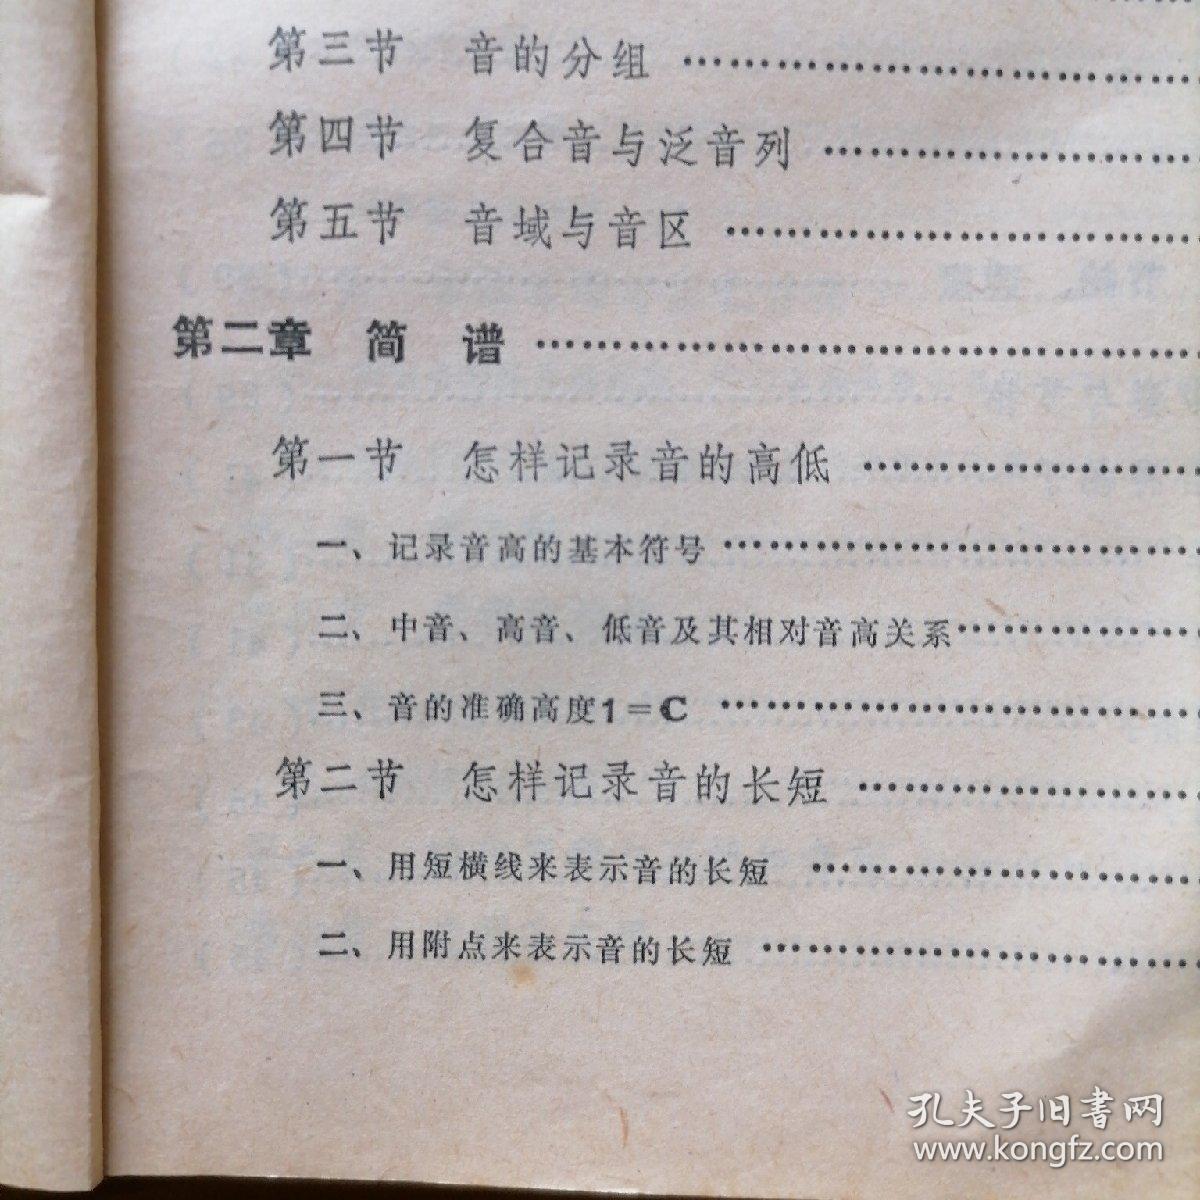 第三节 音的分组 ……………………………
第四节 复合音与泛音列 ……………………
第五节 音域与音区 …………………………
第二章 简 谱 ……………………………………
第一节 怎样记录音的高低 …………………
一、记录音高的基本符号 …………………………
二、中音、高音、低音及其相对音高关系 ……………
三、音的准确高度1=C …………………………
第二节 怎样记录音的长短 …………………
一、用短横线来表示音的长短 ……………………
二、用附点来表示音的长短 ………………………
孔夫子旧书网
www.kongfz.com